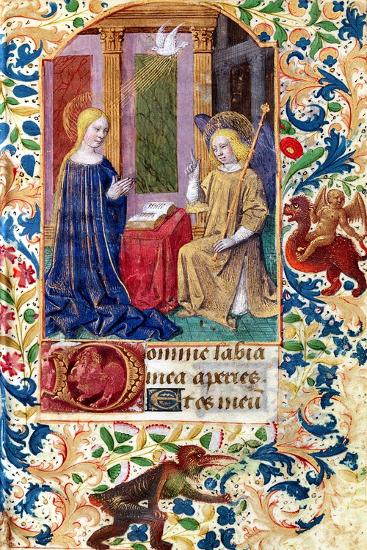 Domine labia
mea aperies.
Et os meu̅